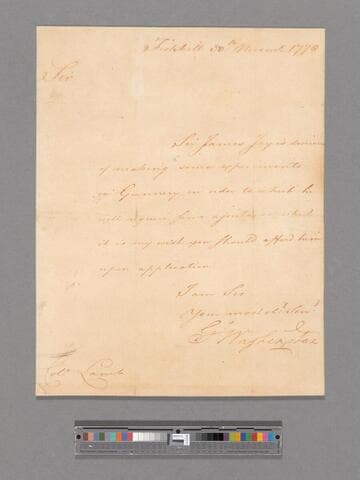 Fishkill 30th Novemb. 1778
Sir
Sir James Jay is desirous
of making some experiments
in Gunnery in order to which he
will require some assistance which
it is my wish you should afford him
upon application
I am Sir
Your most Obt Servt
Go Washington
Colo. Lamb